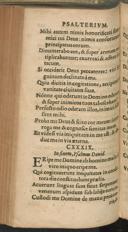 PSALTERIVM.
Mihi autem nimis honorificati sunt a-
mici tui Deus: nimis confortatus est
principatus eorum.
Dinumerabo eos, & super arenam mul-
tiplicabuntur: exurrexi & adhuc sum
tecum.
Si occideris Deus peccatores: viri san-
guinum declinate à me.
Quia dicitis in cogitatione: accipiant in
vanitate ciuitates suas.
Nonne qui oderunt te Domine oderam:
& super inimicos tuos tabescebam?
Perfecto odio oderam illos, inimici facti
sunt mihi.
Proba me Deus & scito cor meum: inter-
roga me & cognosce semitas meas.
Et vide si via iniquitatis in me est: & de-
duc me in via æterna.
CXXXIX.
In finem, Psalmus Dauid.
ERipe me Domine ab homine malo: à
viro iniquo eripe me.
Qui cogitauerunt iniquitates in corde:
tota die constituebant prælia.
Acuerunt linguas suas sicut serpentis:
venenum aspidum sub labiis eorum.
Custodi me Domine de manu peccato-